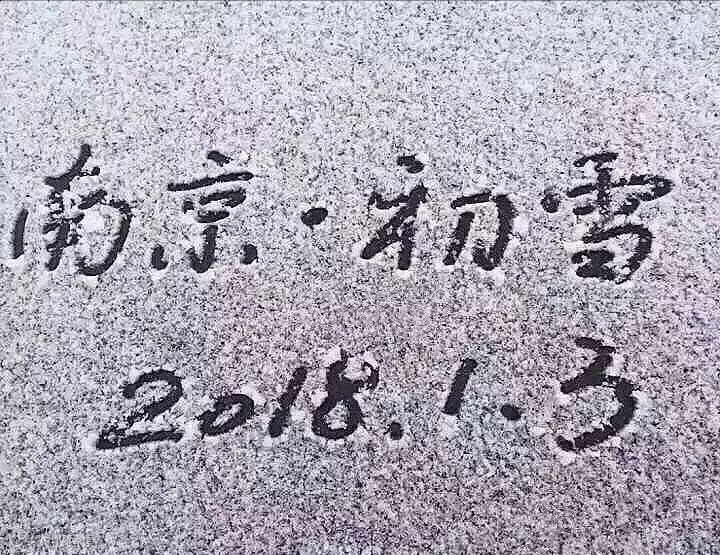 南京·初雪
2018.1.3